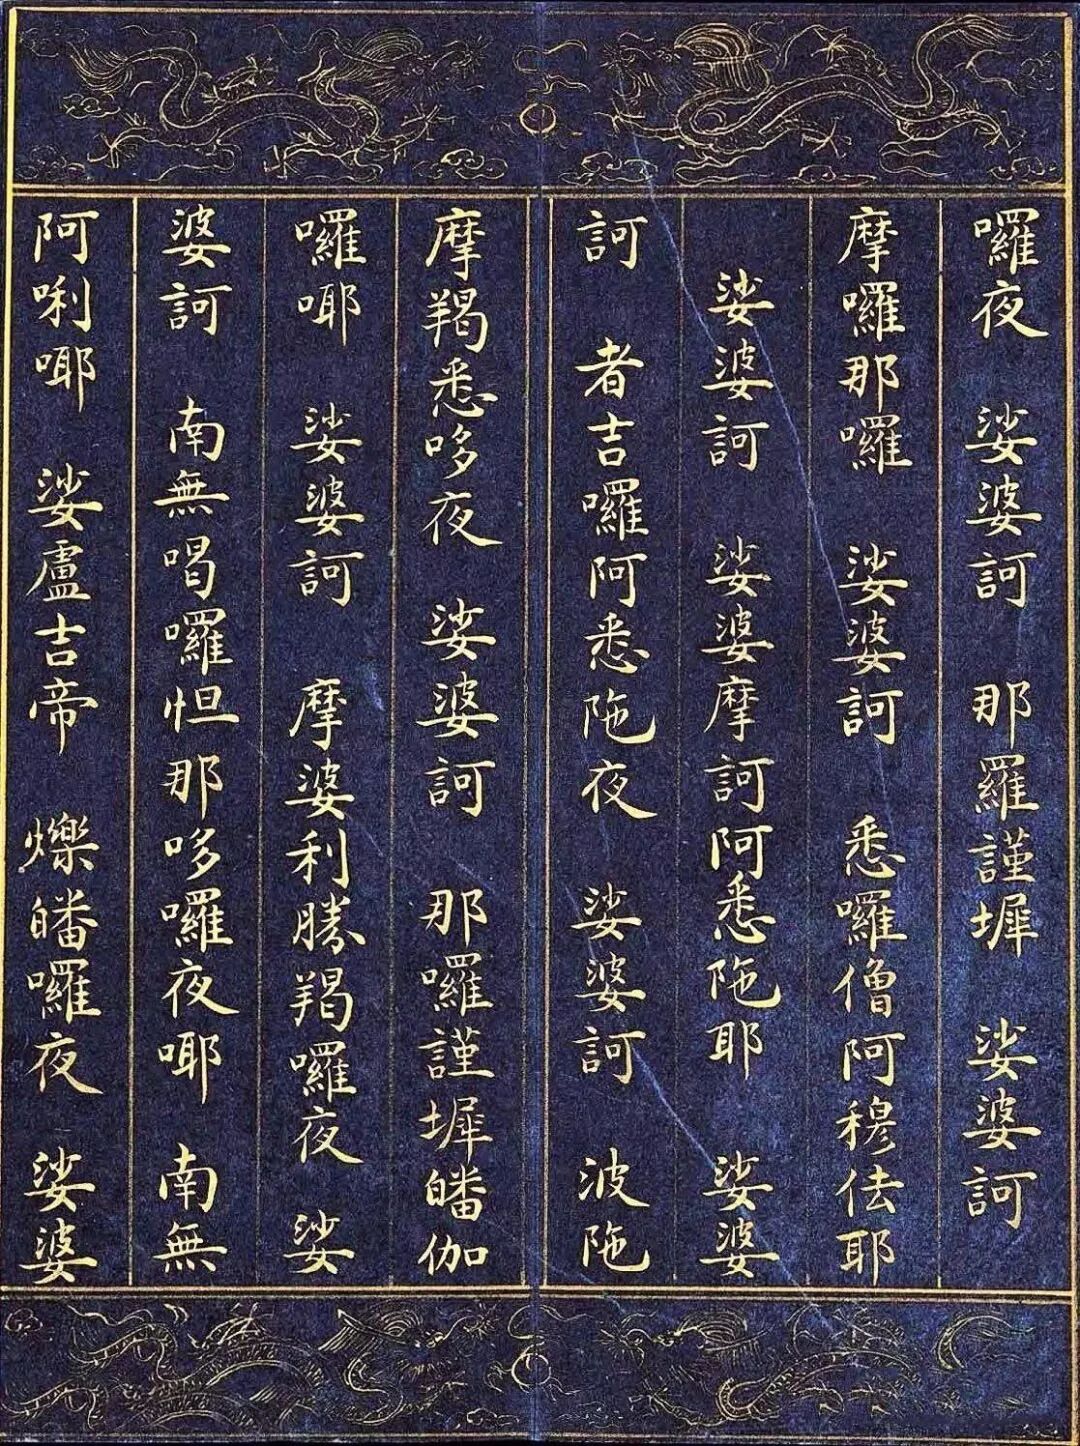 囉夜　娑婆訶　那羅謹墀　娑婆訶
摩囉那囉　娑婆訶　悉囉僧阿穆佉耶
娑婆訶　娑婆摩訶阿悉陁耶　娑婆
訶　者吉囉阿悉陁夜　娑婆訶　波陁
摩羯悉哆夜　娑婆訶　那囉謹墀皤伽
囉哪　娑婆訶　摩婆利勝羯囉夜　娑
婆訶　南無喝囉怛那哆囉夜哪　南無
阿唎哪　娑盧吉帝　爍皤囉夜　娑婆